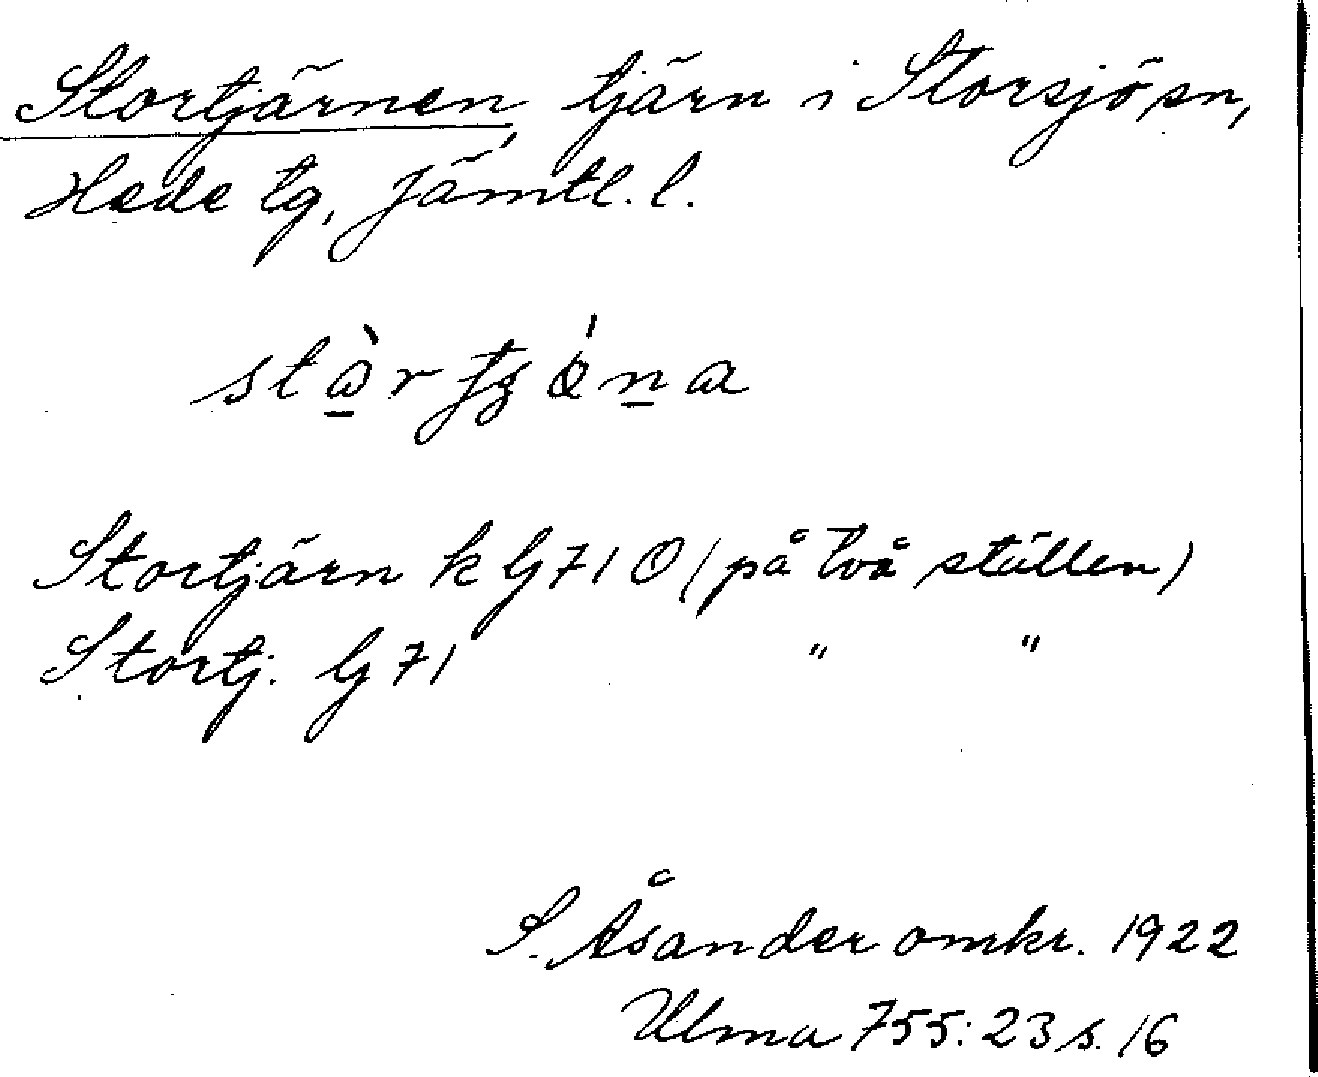 Stortjärnen, tjärn i Storsjö sn,
Hede tg, Jämtl. l.
Stortjärn k G 71 O (på två ställen)
Stortj. G 71 " "
S. Åsander omkr. 1922
Ulma 755:23 s. 16